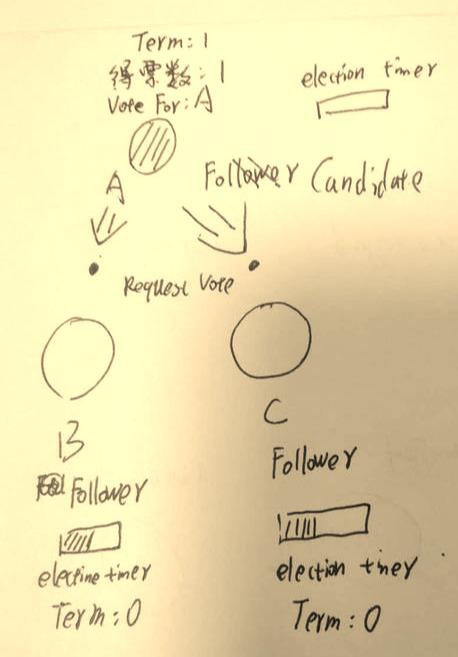 Term: 1
得票数: 1
Vote For: A
election timer
A
Follower Candidate
Request Vote
B
Follower
electine timer
Term: 0
C
Follower
election timer
Term: 0